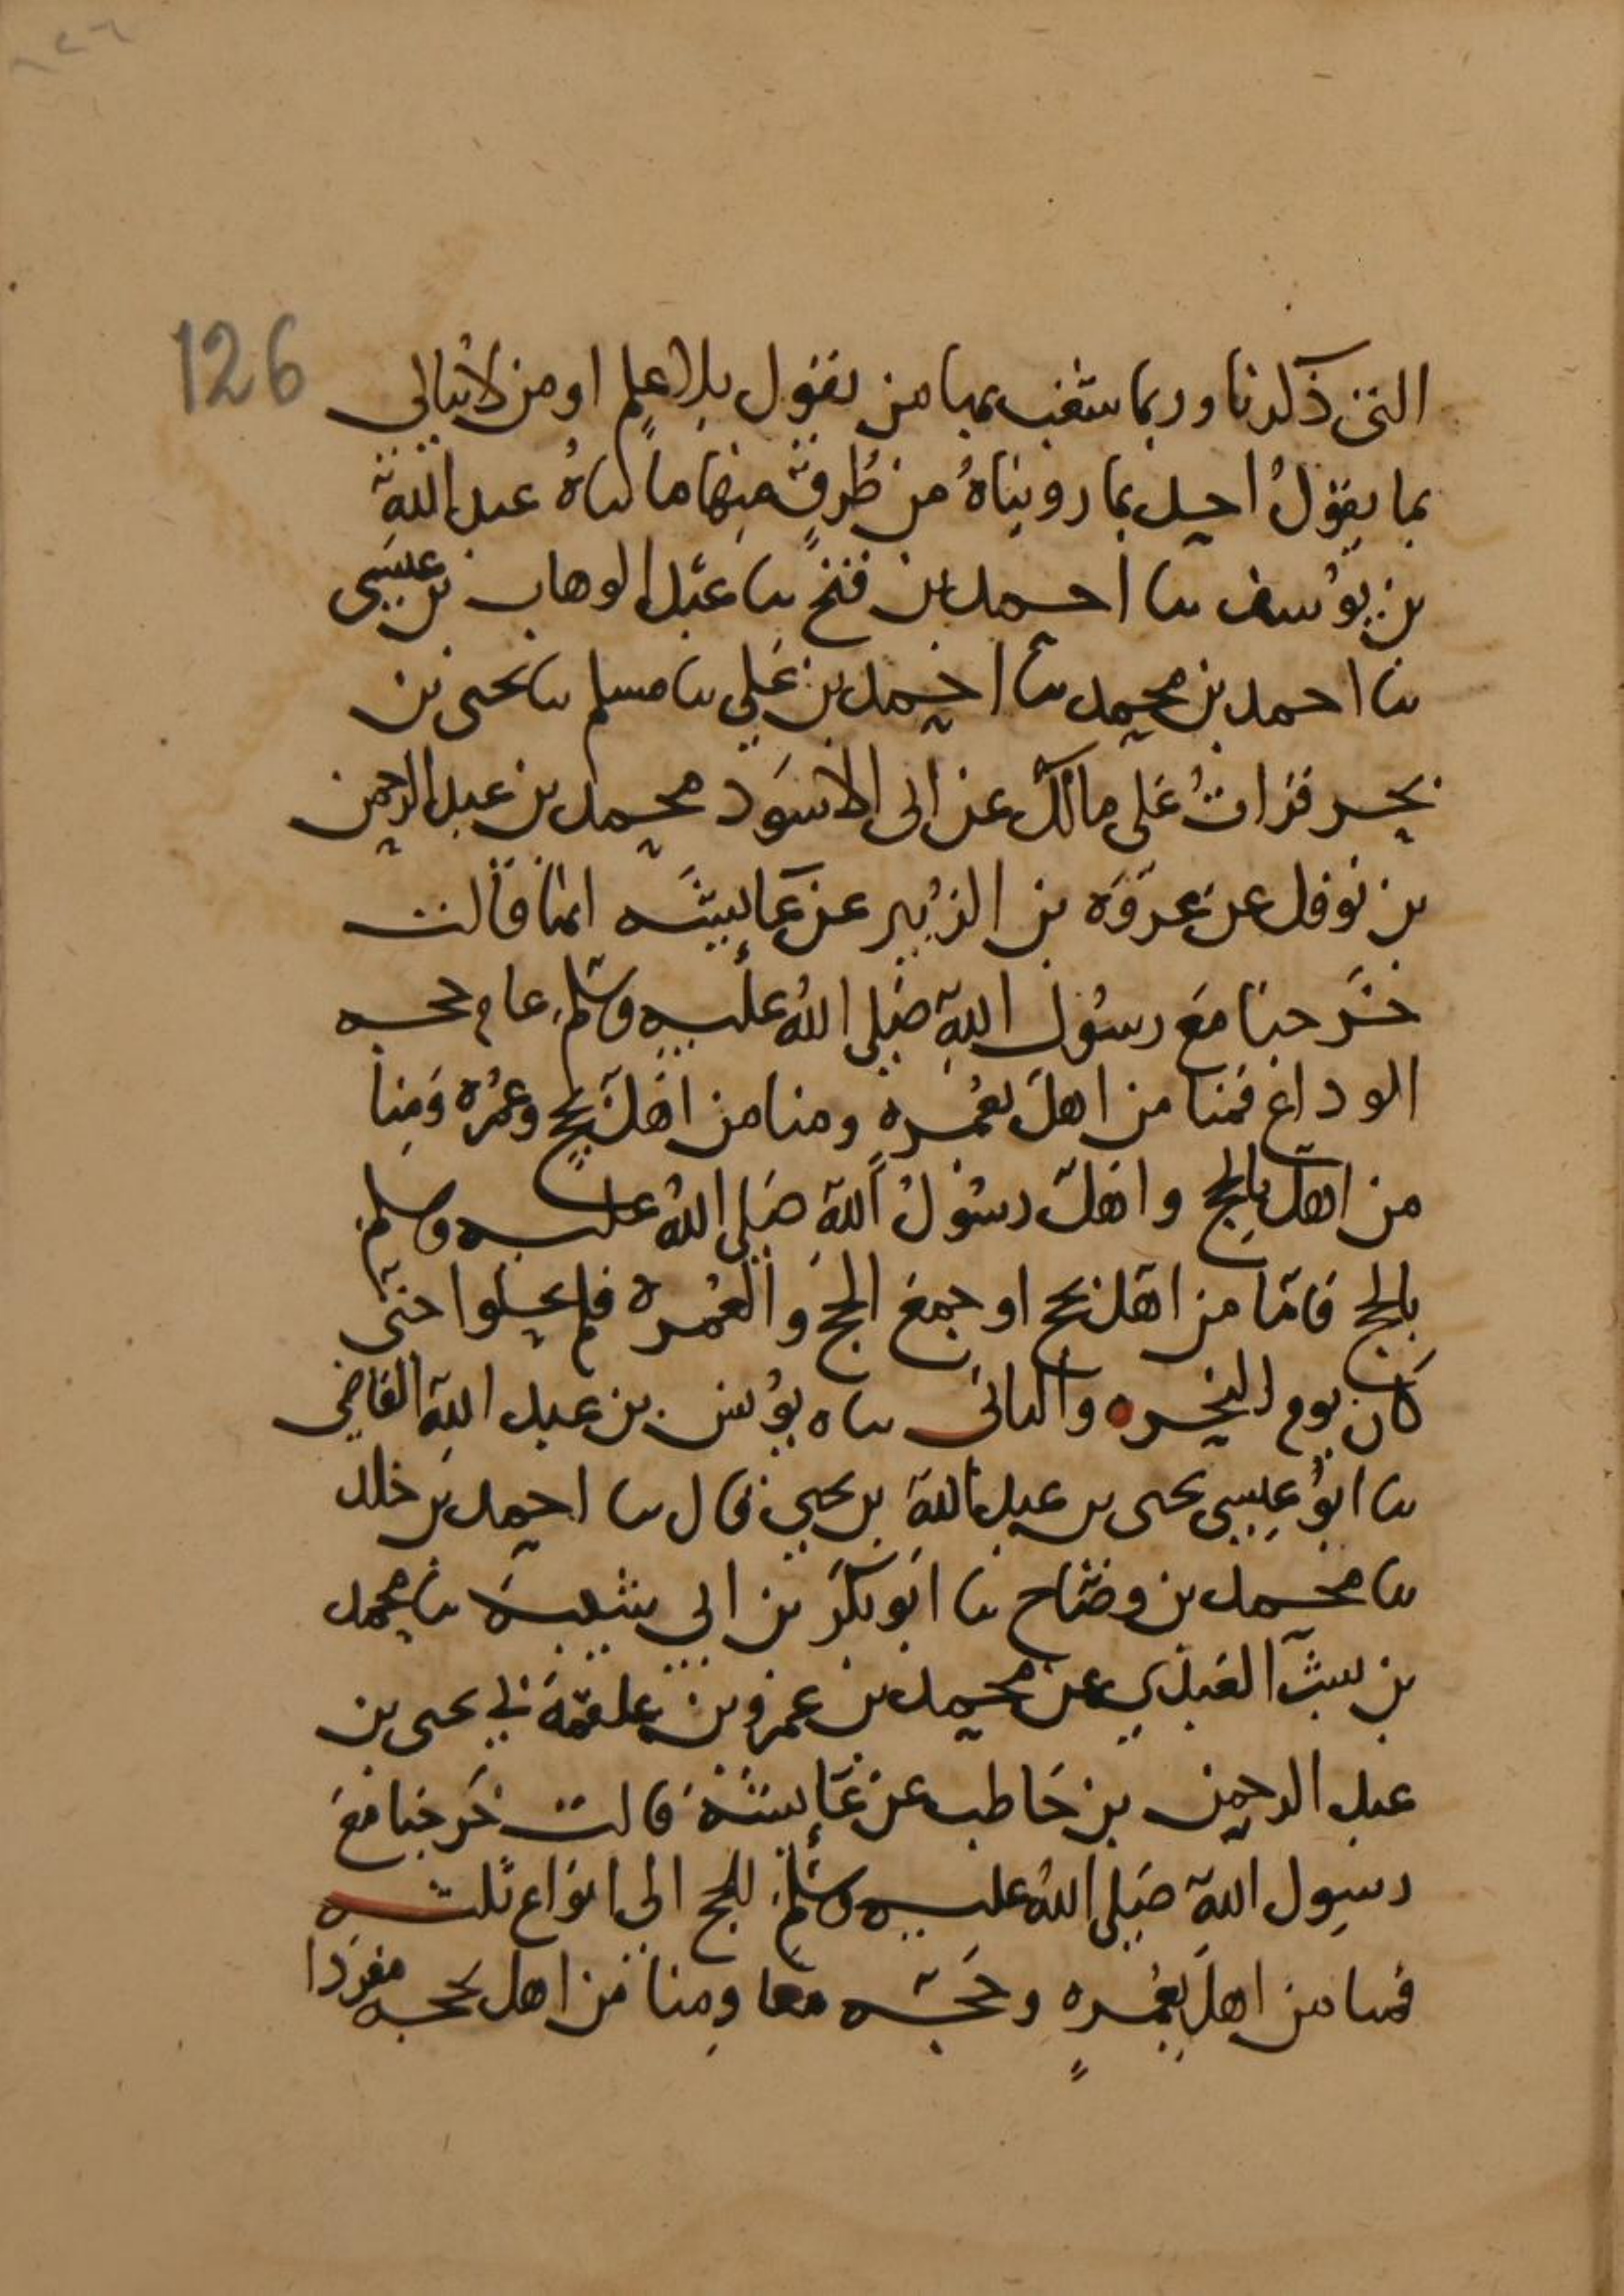 126
التي ذكرنا وربما شغب بها من يقول بلا علم او من لا يبالي
بما يقول احد بما رويناه من طرق منها ما ثناه عبد الله
بن يوسف ثنا احمد بن فتح ثنا عبد الوهاب بن عيسى
ثنا احمد بن محمد ثنا احمد بن علي ثنا مسلم ثنا يحيى بن
يحيى قرات على مالك عن ابي الاسود محمد بن عبد الرحمن
بن نوفل عن عروة بن الزبير عن عايشه انها قالت
خرجنا مع رسول الله صلى الله عليه وسلم عام حجه
الوداع فمنا من اهل بعمره ومنا من اهل بحج وعمره ومنا
من اهل بالحج واهل رسول الله صلى الله عليه وسلم
بالحج فاما من اهل بحج او جمع الحج والعمره فلم يحلوا حتى
كان يوم النحر ه والثاني ثناه يونس بن عبد الله القاضي
ثنا ابو عيسى يحيى بن عبد الله بن يحيى قال ثنا احمد بن خلد
ثنا محمد بن وضاح ثنا ابو بكر بن ابي شيبه ثنا محمد
بن بشر العبدي عن محمد بن عمرو بن علقمة ني يحيى بن
عبد الرحمن بن حاطب عن عايشة قالت خرجنا مع
رسول الله صلى الله عليه وسلم للحج الى انواع ثلثه
فمنا من اهل بعمره وحجه معا ومنا من اهل بحجه مفردا